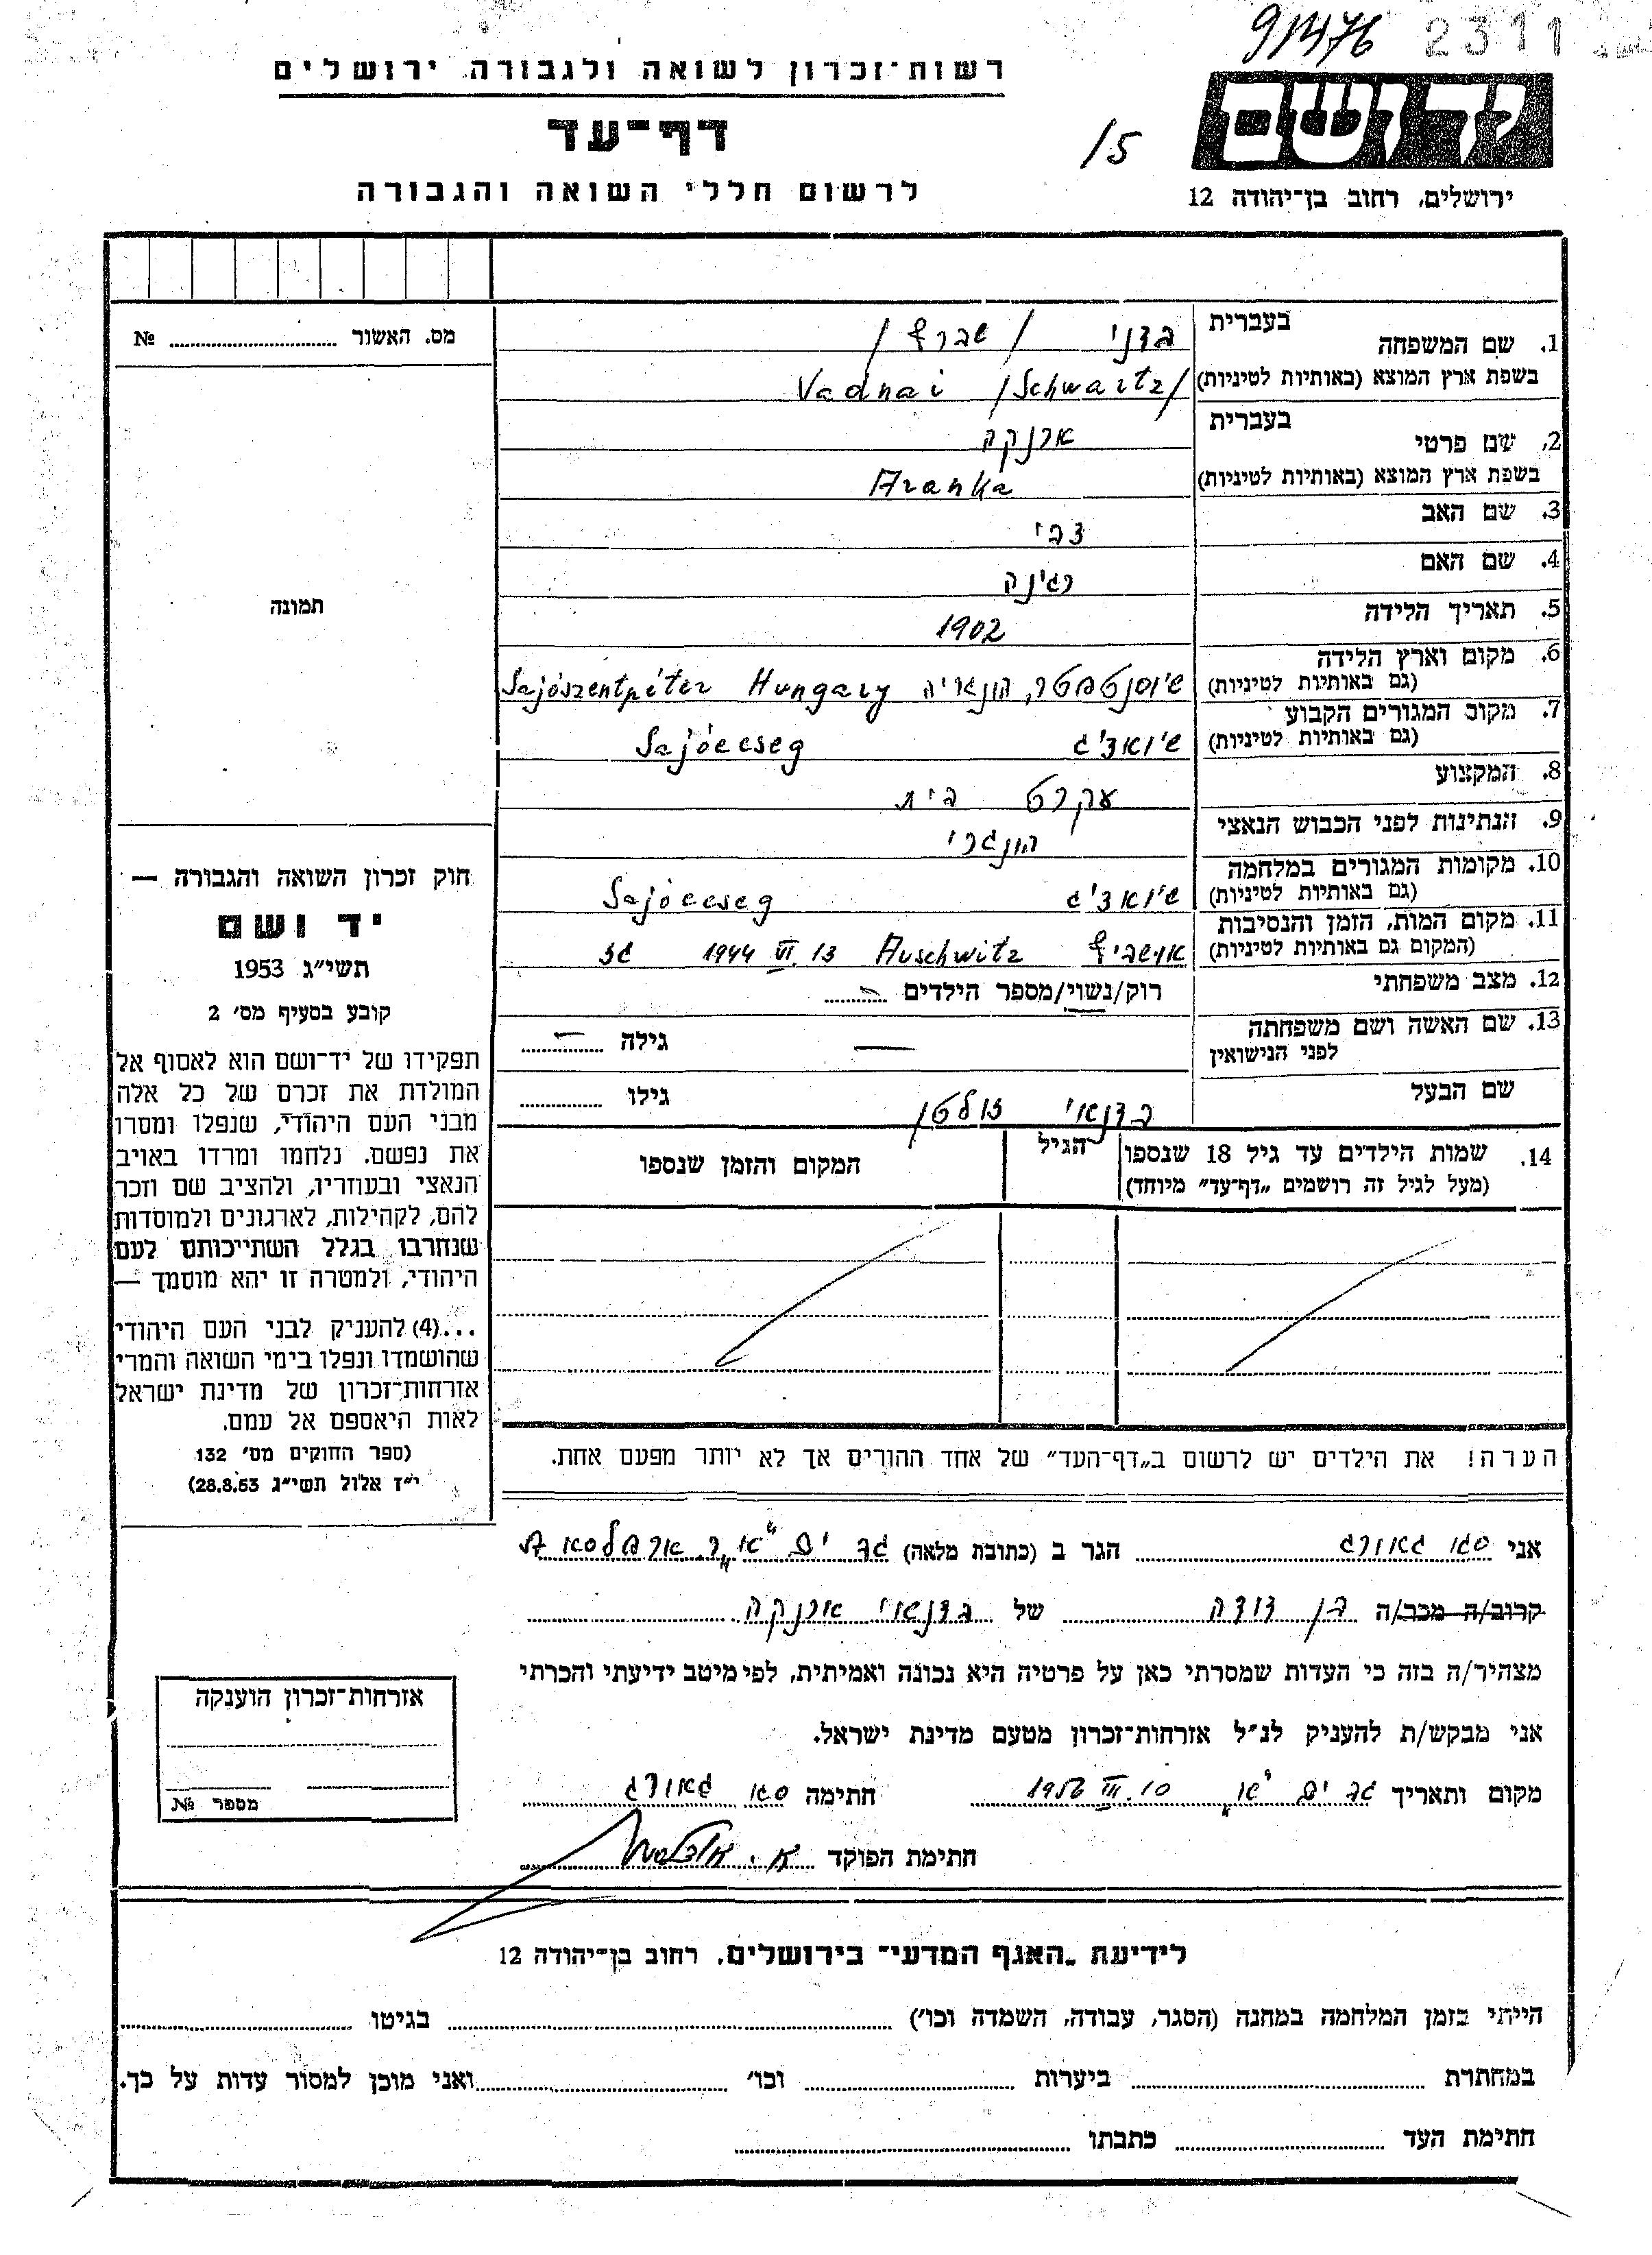 91476 2311
רשות-זכרון לשואה ולגבורה, ירושלים
יד ושם
דף-עד
15
לרשום חללי השואה והגבורה
ירושלים, רחוב בן-יהודה 12
מס. האשור № 
1. שם המשפחה
בעברית ודני /שברץ/
בשפת ארץ המוצא (באותיות לטיניות) Vadnai /Schwartz/
2. שם פרטי
בעברית ארנקה
בשפת ארץ המוצא (באותיות לטיניות) Aranka
3. שם האב צבי
4. שם האם רגינה
5. תאריך הלידה 1902
6. מקום וארץ הלידה
(גם באותיות לטיניות) הונגריה Sajószentpéter Hungary
7. מקום המגורים הקבוע
(גם באותיות לטיניות) שיואצ'ג Sajóecseg
8. המקצוע עקרת בית
9. הנתינות לפני הכבוש הנאצי הונגרי
10. מקומות המגורים במלחמה
(גם באותיות לטיניות) שיואצ'ג Sajóecseg
11. מקום המות, הזמן והנסיבות
(המקום גם באותיות לטיניות) אושביץ Auschwitz 13 VI. 1944 גז
12. מצב משפחתי רוק/נשוי/מספר הילדים —
13. שם האשה ושם משפחתה
לפני הנישואין — גילה —
שם הבעל ודנאי זולטן גילו
14. שמות הילדים עד גיל 18 שנספו
(מעל לגיל זה רושמים „דף-עד" מיוחד)
הגיל
המקום והזמן שנספו
הערה! את הילדים יש לרשום ב„דף-העד" של אחד ההורים אך לא יותר מפעם אחת.
תמונה
חוק זכרון השואה והגבורה —
יד ושם
תשי"ג 1953
קובע בסעיף מס' 2
תפקידו של יד-ושם הוא לאסוף אל
המולדת את זכרם של כל אלה
מבני העם היהודי, שנפלו ומסרו
את נפשם. נלחמו ומרדו באויב
הנאצי ובעוזריו, ולהציב שם וזכר
להם, לקהילות, לארגונים ולמוסדות
שנחרבו בגלל השתייכותם לעם
היהודי, ולמטרה זו יהא מוסמך —
...(4) להעניק לבני העם היהודי
שהושמדו ונפלו בימי השואה והמרי
אזרחות-זכרון של מדינת ישראל
לאות היאספם אל עמם.
(ספר החוקים מס' 132
י"ז אלול תשי"ג 28.8.53)
אני סגו גאורג הגר ב (כתובת מלאה) בת ים
קרוב/ה מכר/ה בן דודה של ודנאי ארנקה
מצהיר/ה בזה כי העדות שמסרתי כאן על פרטיה היא נכונה ואמיתית, לפי מיטב ידיעתי והכרתי
אני מבקש/ת להעניק לנ"ל אזרחות-זכרון מטעם מדינת ישראל.
מקום ותאריך בת ים 10. III 1956 חתימה סגו גאורג
חתימת הפוקד
אזרחות-זכרון הוענקה
מספר №
לידיעת „האגף המדעי" בירושלים, רחוב בן-יהודה 12
הייתי בזמן המלחמה במחנה (הסגר, עבודה, השמדה וכו') בגיטו
במחתרת ביערות וכו' ואני מוכן למסור עדות על כך.
חתימת העד כתבתו